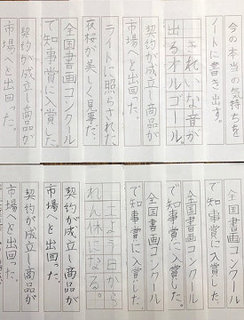 今の本当の気持ちを
ノートに書き出す。
きれいな音が
出るオルゴール。
契約が成立し商品が
ライトに照らされた
夜桜が美しく見事だ。
全国書画コンクール
で知事賞に入賞した
契約が成立し商品が
市場へと出回った。
全国書画コンクール
で知事賞に入賞した。
全国書画コンクール
で知事賞に入賞した。
土よう日から
れん休になる。
契約が成立し商品が
市場へと出回った。
契約が成立し商品が
市場へと出回った。